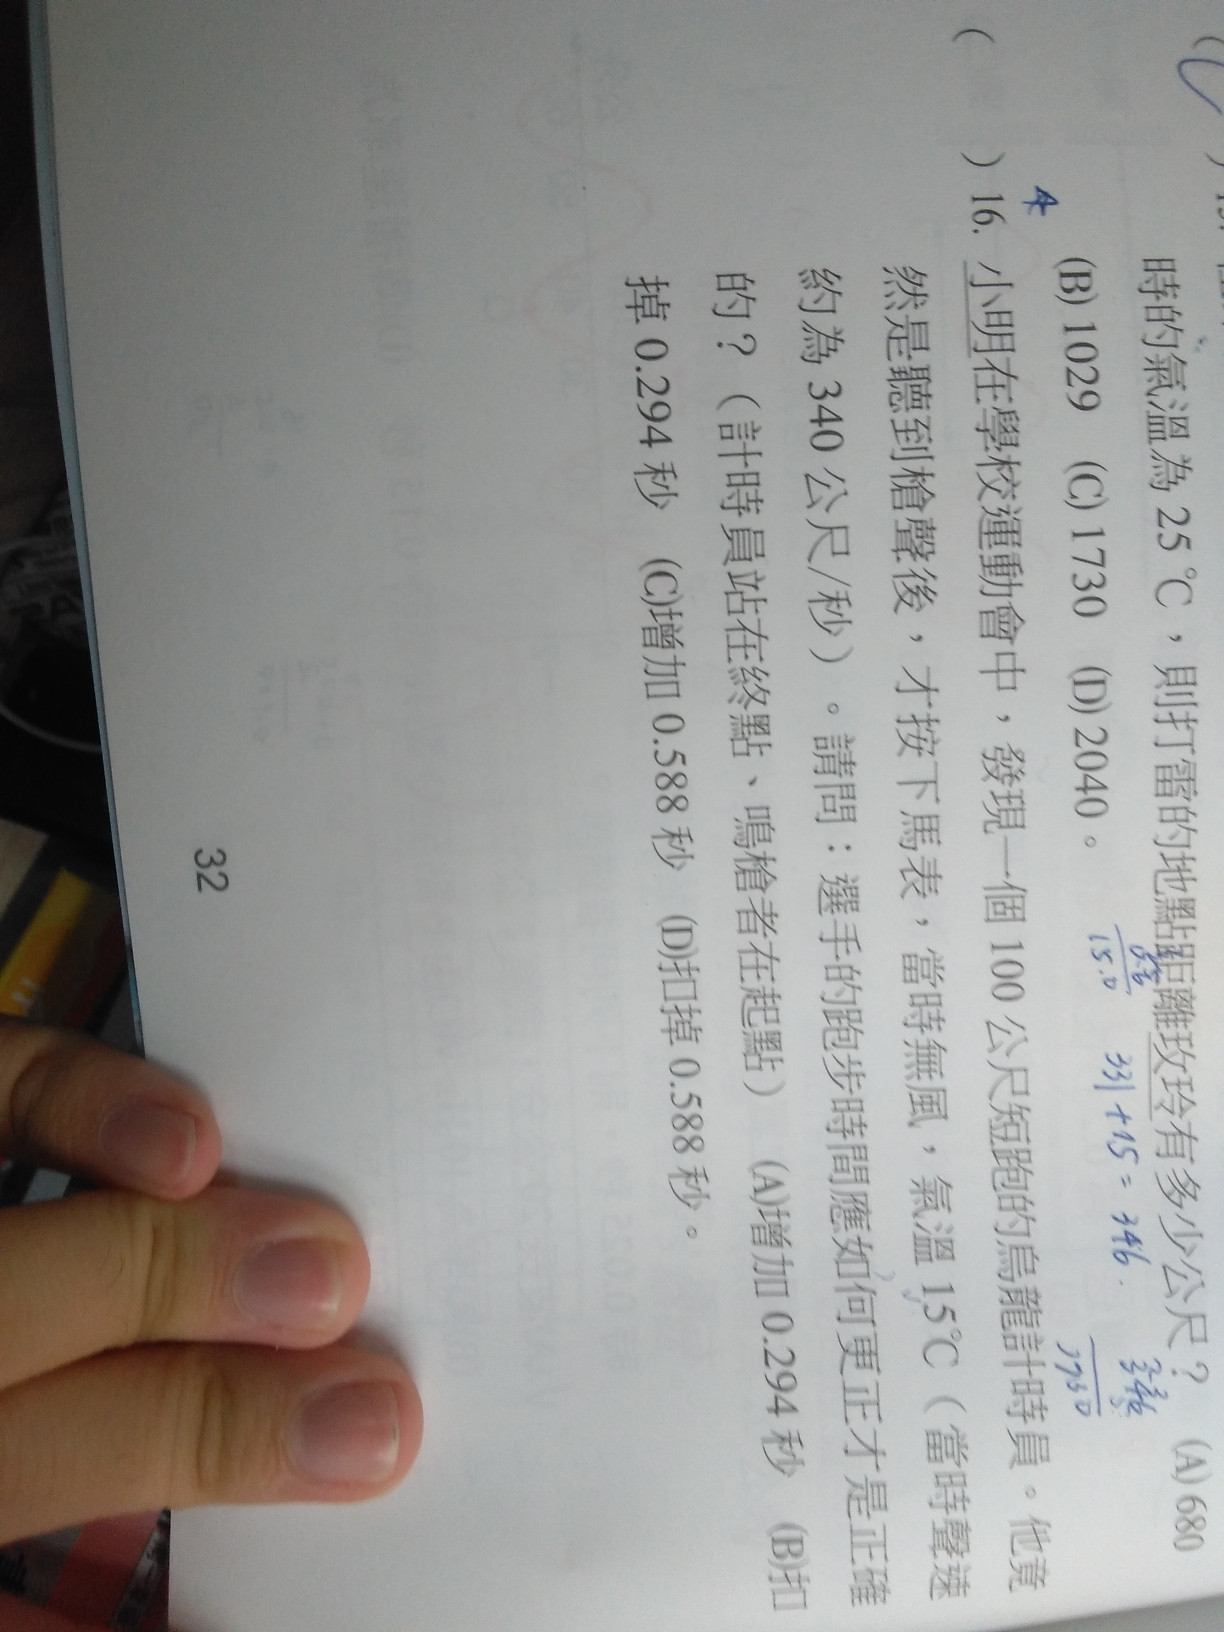 時的氣溫為 25 ℃，則打雷的地點距離玫玲有多少公尺？ (A) 680
(B) 1029 (C) 1730 (D) 2040。
15.0
331+15=346.
346
1730
( ) 16. 小明在學校運動會中，發現一個 100 公尺短跑的烏龍計時員。他竟
然是聽到槍聲後，才按下馬表，當時無風，氣溫 15℃（當時聲速
約為 340 公尺/秒）。請問：選手的跑步時間應如何更正才是正確
的？（計時員站在終點、鳴槍者在起點） (A)增加 0.294 秒 (B)扣
掉 0.294 秒 (C)增加 0.588 秒 (D)扣掉 0.588 秒。
32